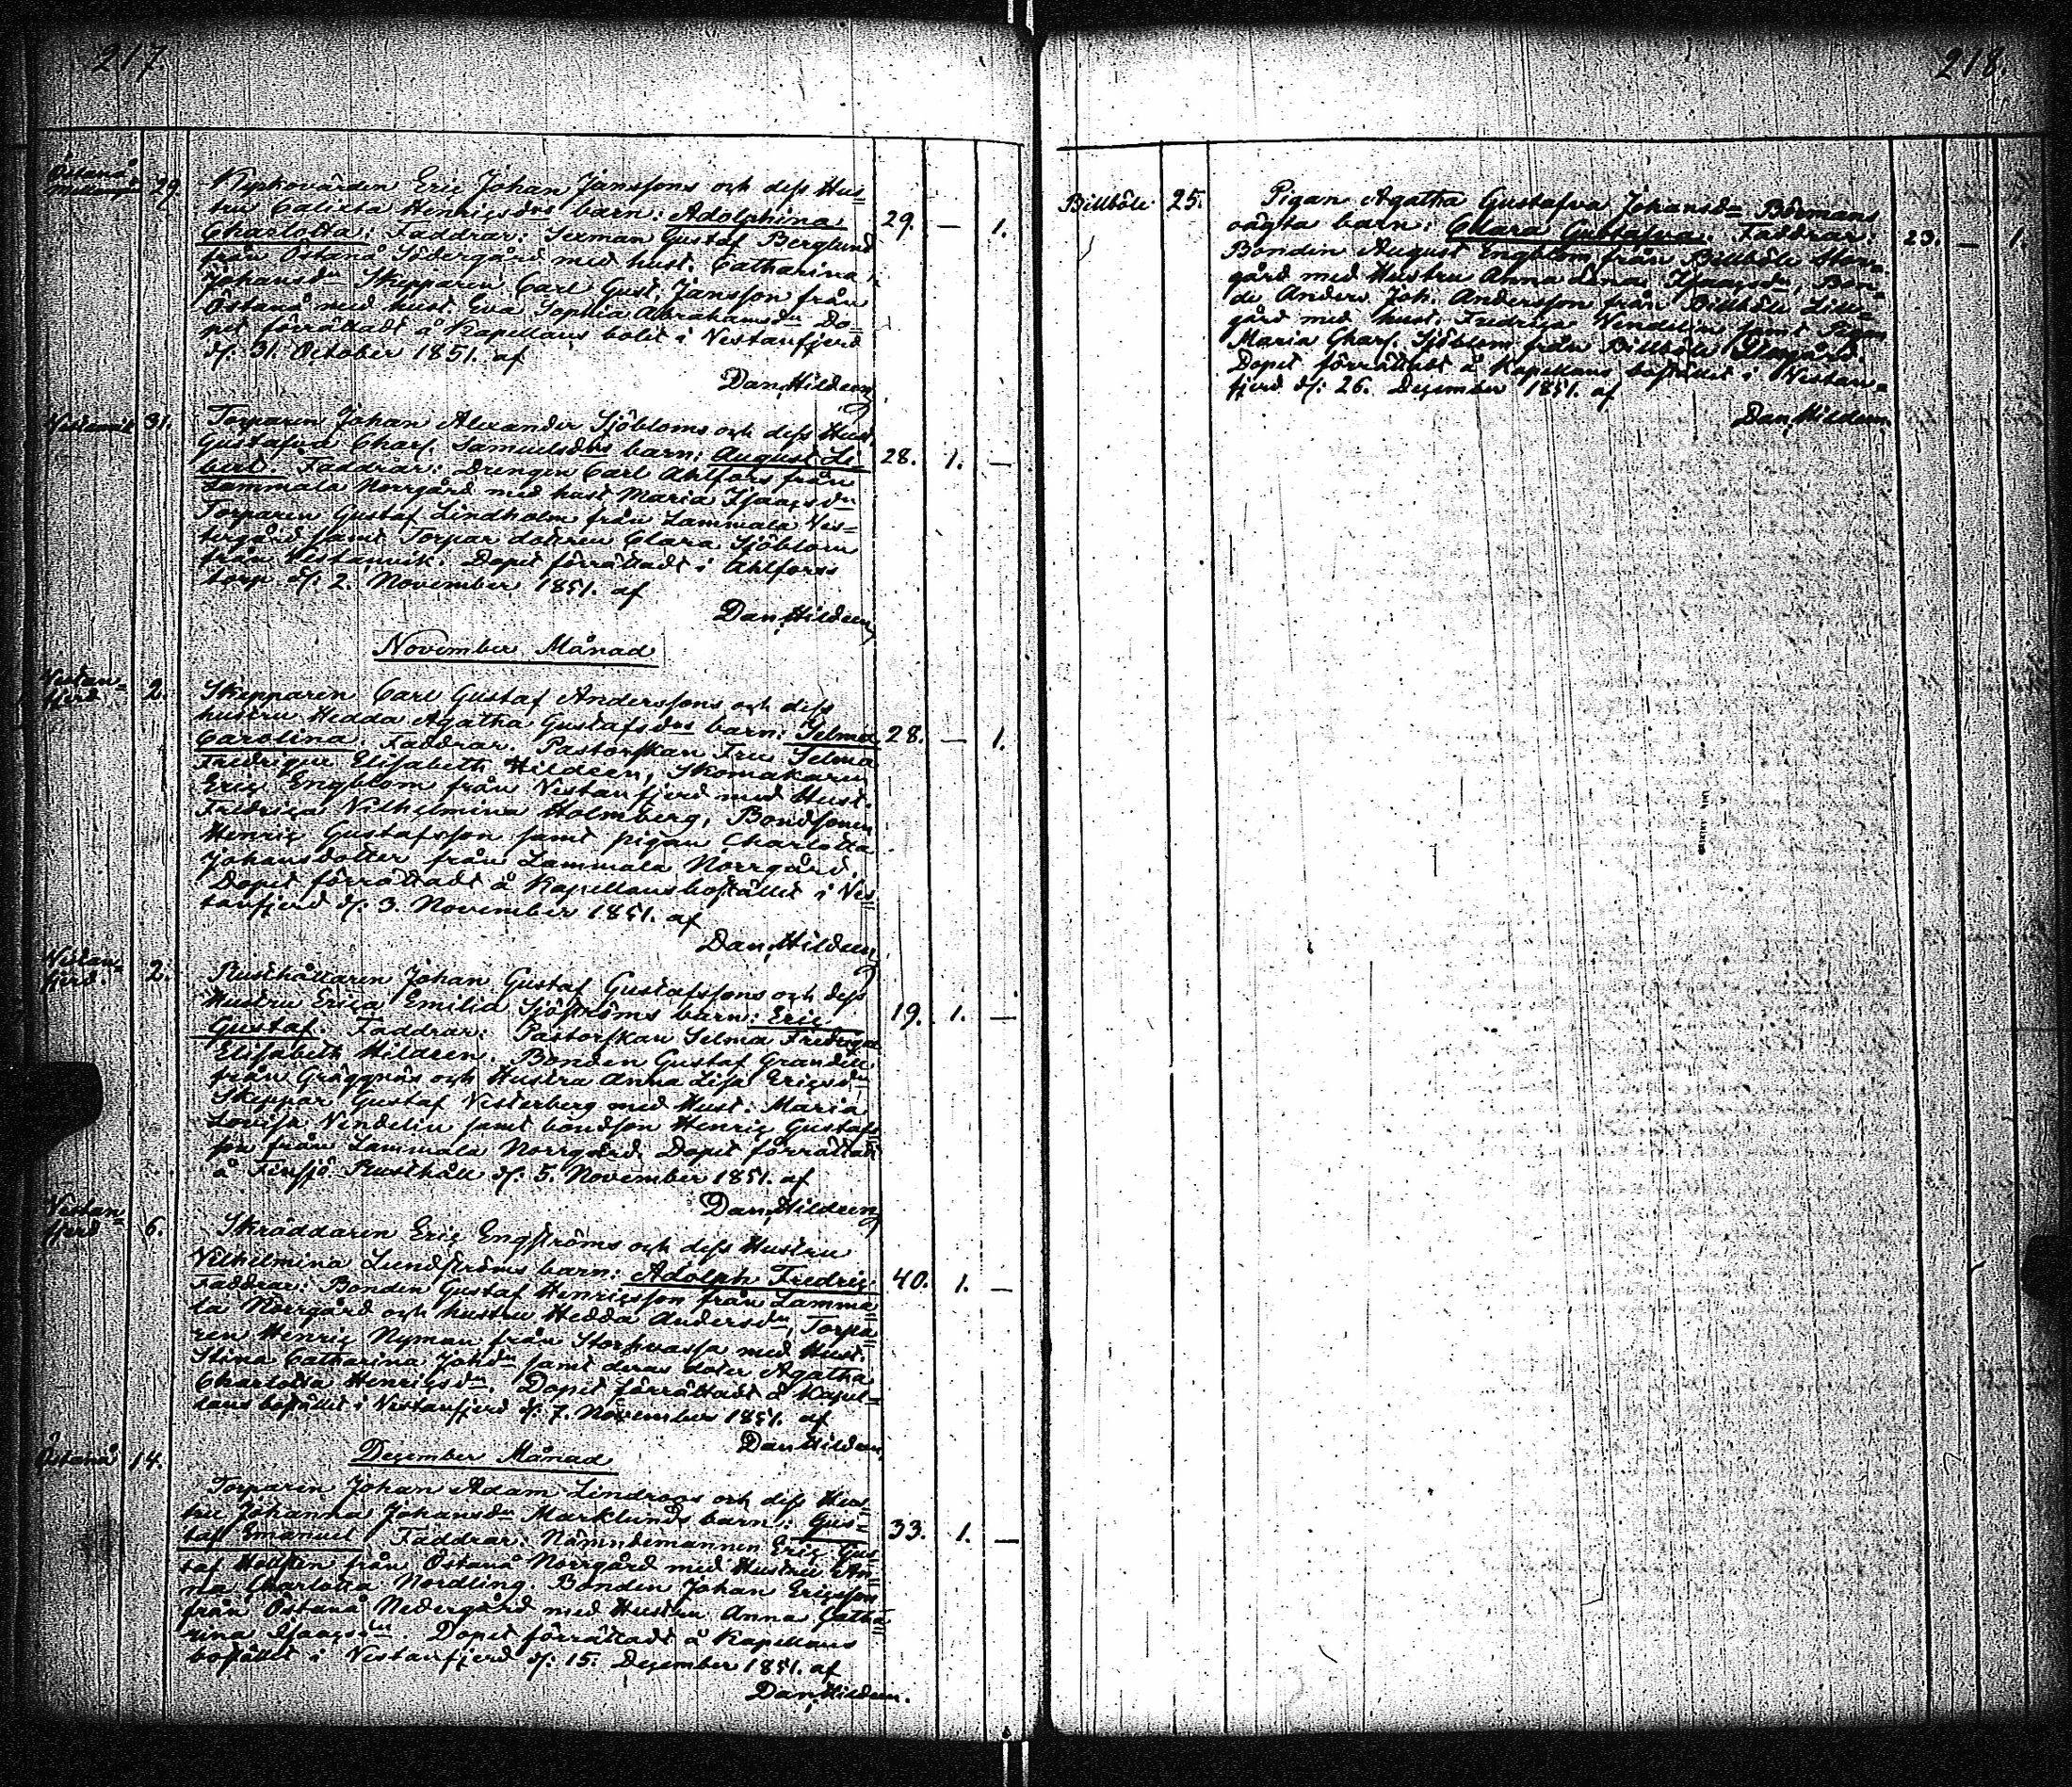 217
Östanå
29.
Kyrkovärden Eric Johan Janssons och dess Hus=
tru Calixta Henricsdrs barn: Adolphina
Charlotta: Faddrar: Sexman Gustaf Berglund
från Östanå Södergård med hust. Catharina
Johansdr Skepparen Carl Gust. Jansson från
Östanå med hust. Eva Sophia Abrahamsdr Do=
pet förrättadt å Kapellans bolet i Vestanfjerd
d/: 31. October 1851. af
Dan, Hildeen
29. — 1.
31.
Torparen Johan Alexander Sjöbloms och dess Hust.
Gustafva Charl. Samuelsdrs barn: August Le=
bert. Faddrar: Drengen Carl Ahlfors från
Lammala Norrgård med hust Maria Isaacsdr
Torparen Gustaf Lindholm från Lammala Ves=
tergård samt Torpar dottren Clara Sjöblom
från Vestanvik. Dopet förrättadt i Ahlfors
torp d/: 2. November 1851. af
Dan, Hildeen
28. 1. —
November Månad
Vestan=
fjerd
2.
Skepparen Carl Gustaf Anderssons och dess
hustru Hedda Agatha Gustafsdrs barn: Selma
Carolina. Faddrar. Pastorskan Fru Selma
Fredrique Elisabeth Hildeen, Skomakaren
Eric Engblom från Vestanfjerd med Hust.
Fredrica Vilhelmina Holmberg, Bondsonen
Henric Gustafsson samt pigan Charlotta
Johansdotter från Lammala Norrgård.
Dopet förrättadt å Kapellansbostället i Ves=
tanfjerd d/: 3. November 1851. af
Dan, Hildeen
28. — 1.
Vestan=
fjerd.
2.
Rusthållaren Johan Gustaf Gustafssons och dess
Hustru Erica Emilia Sjöströms barn: Eric
Gustaf. Faddrar: Pastorskan Selma Fredrique
Elisabeth Hildeen. Bonden Gustaf Grandell
från Gräggnäs och Hustru Anna Lisa Ericsdr
Skeppar Gustaf Vesterberg med Hust: Maria
Lovisa Vendelin samt bondson Henric Gustafs=
son från Lammala Norrgård. Dopet förrättadt
å Finsjö Rusthåll d/: 5. November 1851. af
Dan, Hildeen
19. 1. —
Vestan=
fjerd
6.
Skräddaren Eric Engströms och dess Hustru
Vilhelmina Lundströms barn: Adolph Fredric
Faddrar: Bonden Gustaf Henricsson från Lamma=
la Norrgård och hustru Hedda Andersdr, Torpa=
ren Henric Nyman från Storhvassa med Hust.
Stina Catharina Johdr samt deras doter Agatha
Charlotta Henricsdr. Dopet förrättadt å Kapel=
lans bostället i Vestanfjerd d/: 7. November 1851. af
Dan, Hildeen
40. 1. —
December Månad
Östanå
14.
Torparen Johan Adam Lindroos och dess Hus=
tru Johanna Johansdr Marklunds barn: Gus=
taf Emanuel. Faddrar: Nämndemannen Eric Gus=
taf Hollsten från Östanå Norrgård med Hustru An=
na Charlotta Nordling. Bonden Johan Ericsson
från Östanå Nedergård med Hustru Anna Catha
rina Isaacsdr. Dopet förrättadt å Kapellans
bostället i Vestanfjerd d/: 15. December 1851. af
Dan, Hildeen.
33. 1. —
218.
Billböle
25.
Pigan Agatha Gustafva Johansdr Börmans
oägta barn: Clara Gustafva. Faddrar:
Bonden August Engblom från Billböle Stor=
gård med Hustru Anna Lena Isaacsdr, Bon=
de Anders Joh. Andersson från Billböle Lill=
gård med hust. Fredrica Vendelin samt Pigan
Maria Charl. Sjöblom från Billböle Storgård.
Dopet förrättadt å Kapellans bostället i Vestan=
fjerd d/: 26. December 1851. af
Dan, Hildeen
23. — 1.